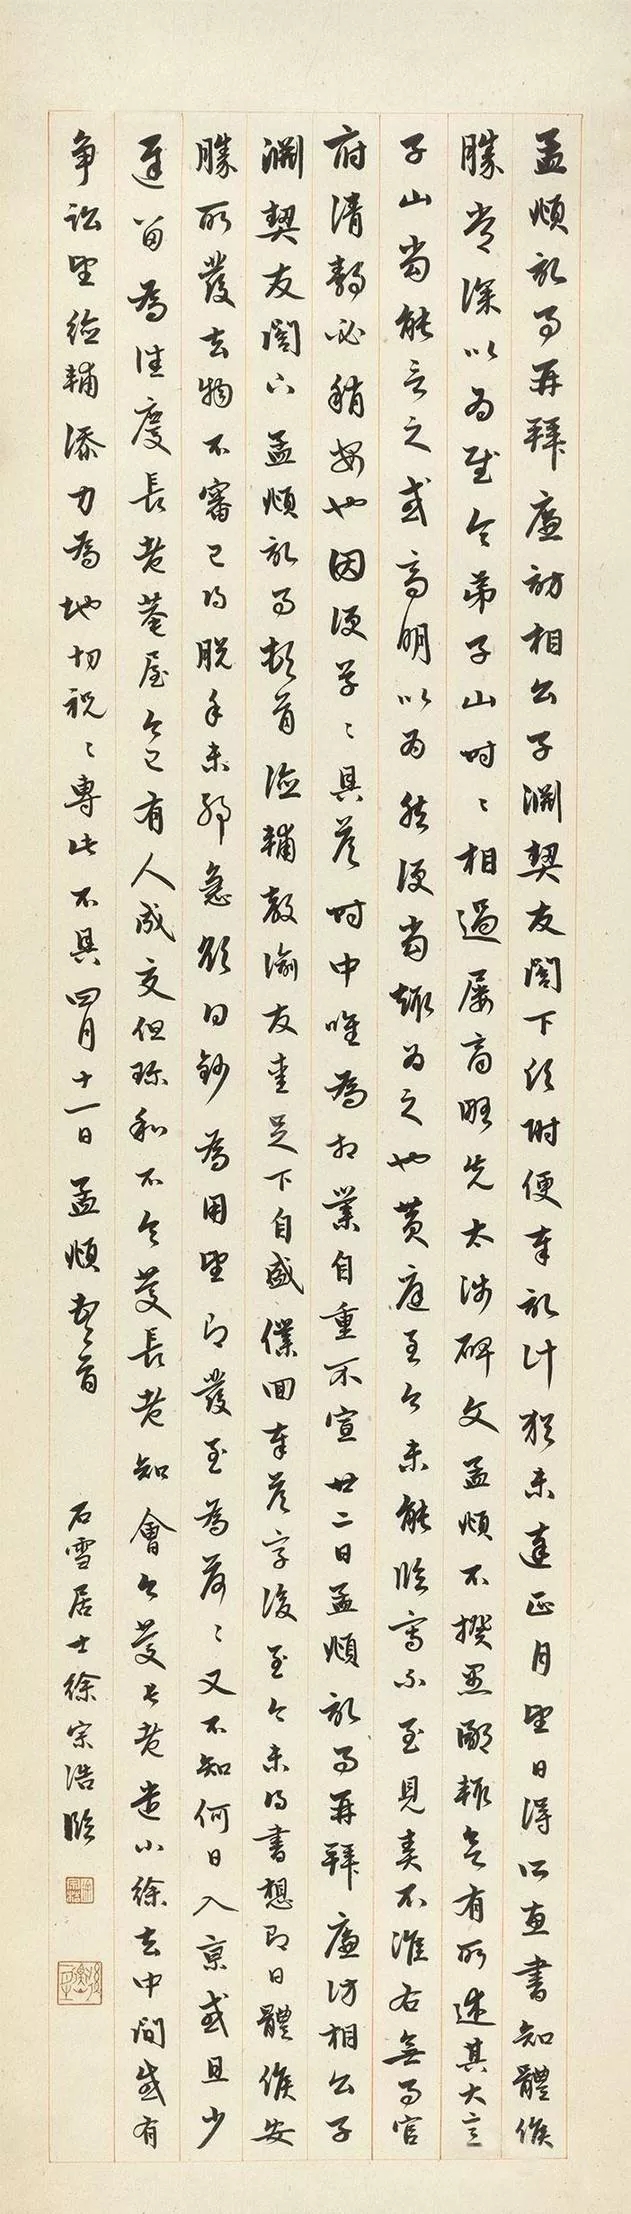 孟頫記事再拜廉訪相公子淵契友閣下後附便奉記計程未達正月望日得所惠書知體候
勝常深以為慰令弟子山時〻相過屢言時先太師碑文孟頫不揆愚鄙輒嘗有所述其大言
子山當能言之或高明以為然便當輒為之也黄庭至今未能臨寫亦至見責不準右無事官
府清静必稍安也因便草〻具答時中唯為相業自重不宣廿二日孟頫記事再拜廉訪相公子
淵契友閣下孟頫記事頓首德輔教諭友愛足下自盛僕回奉答字後至今未得書想即日體候安
勝所發去物不審已得脱手未耶急欲得鈔為用望即發至為荷〻又不知何日入京或且少
遲留為佳慶長老菴屋今已有人成交但珍和不令茇長老知會今茇長老遣小徐去中間或有
争訟望德輔添力為地切祝〻專此不具四月十一日孟頫頓首
石雪居士徐宗浩臨